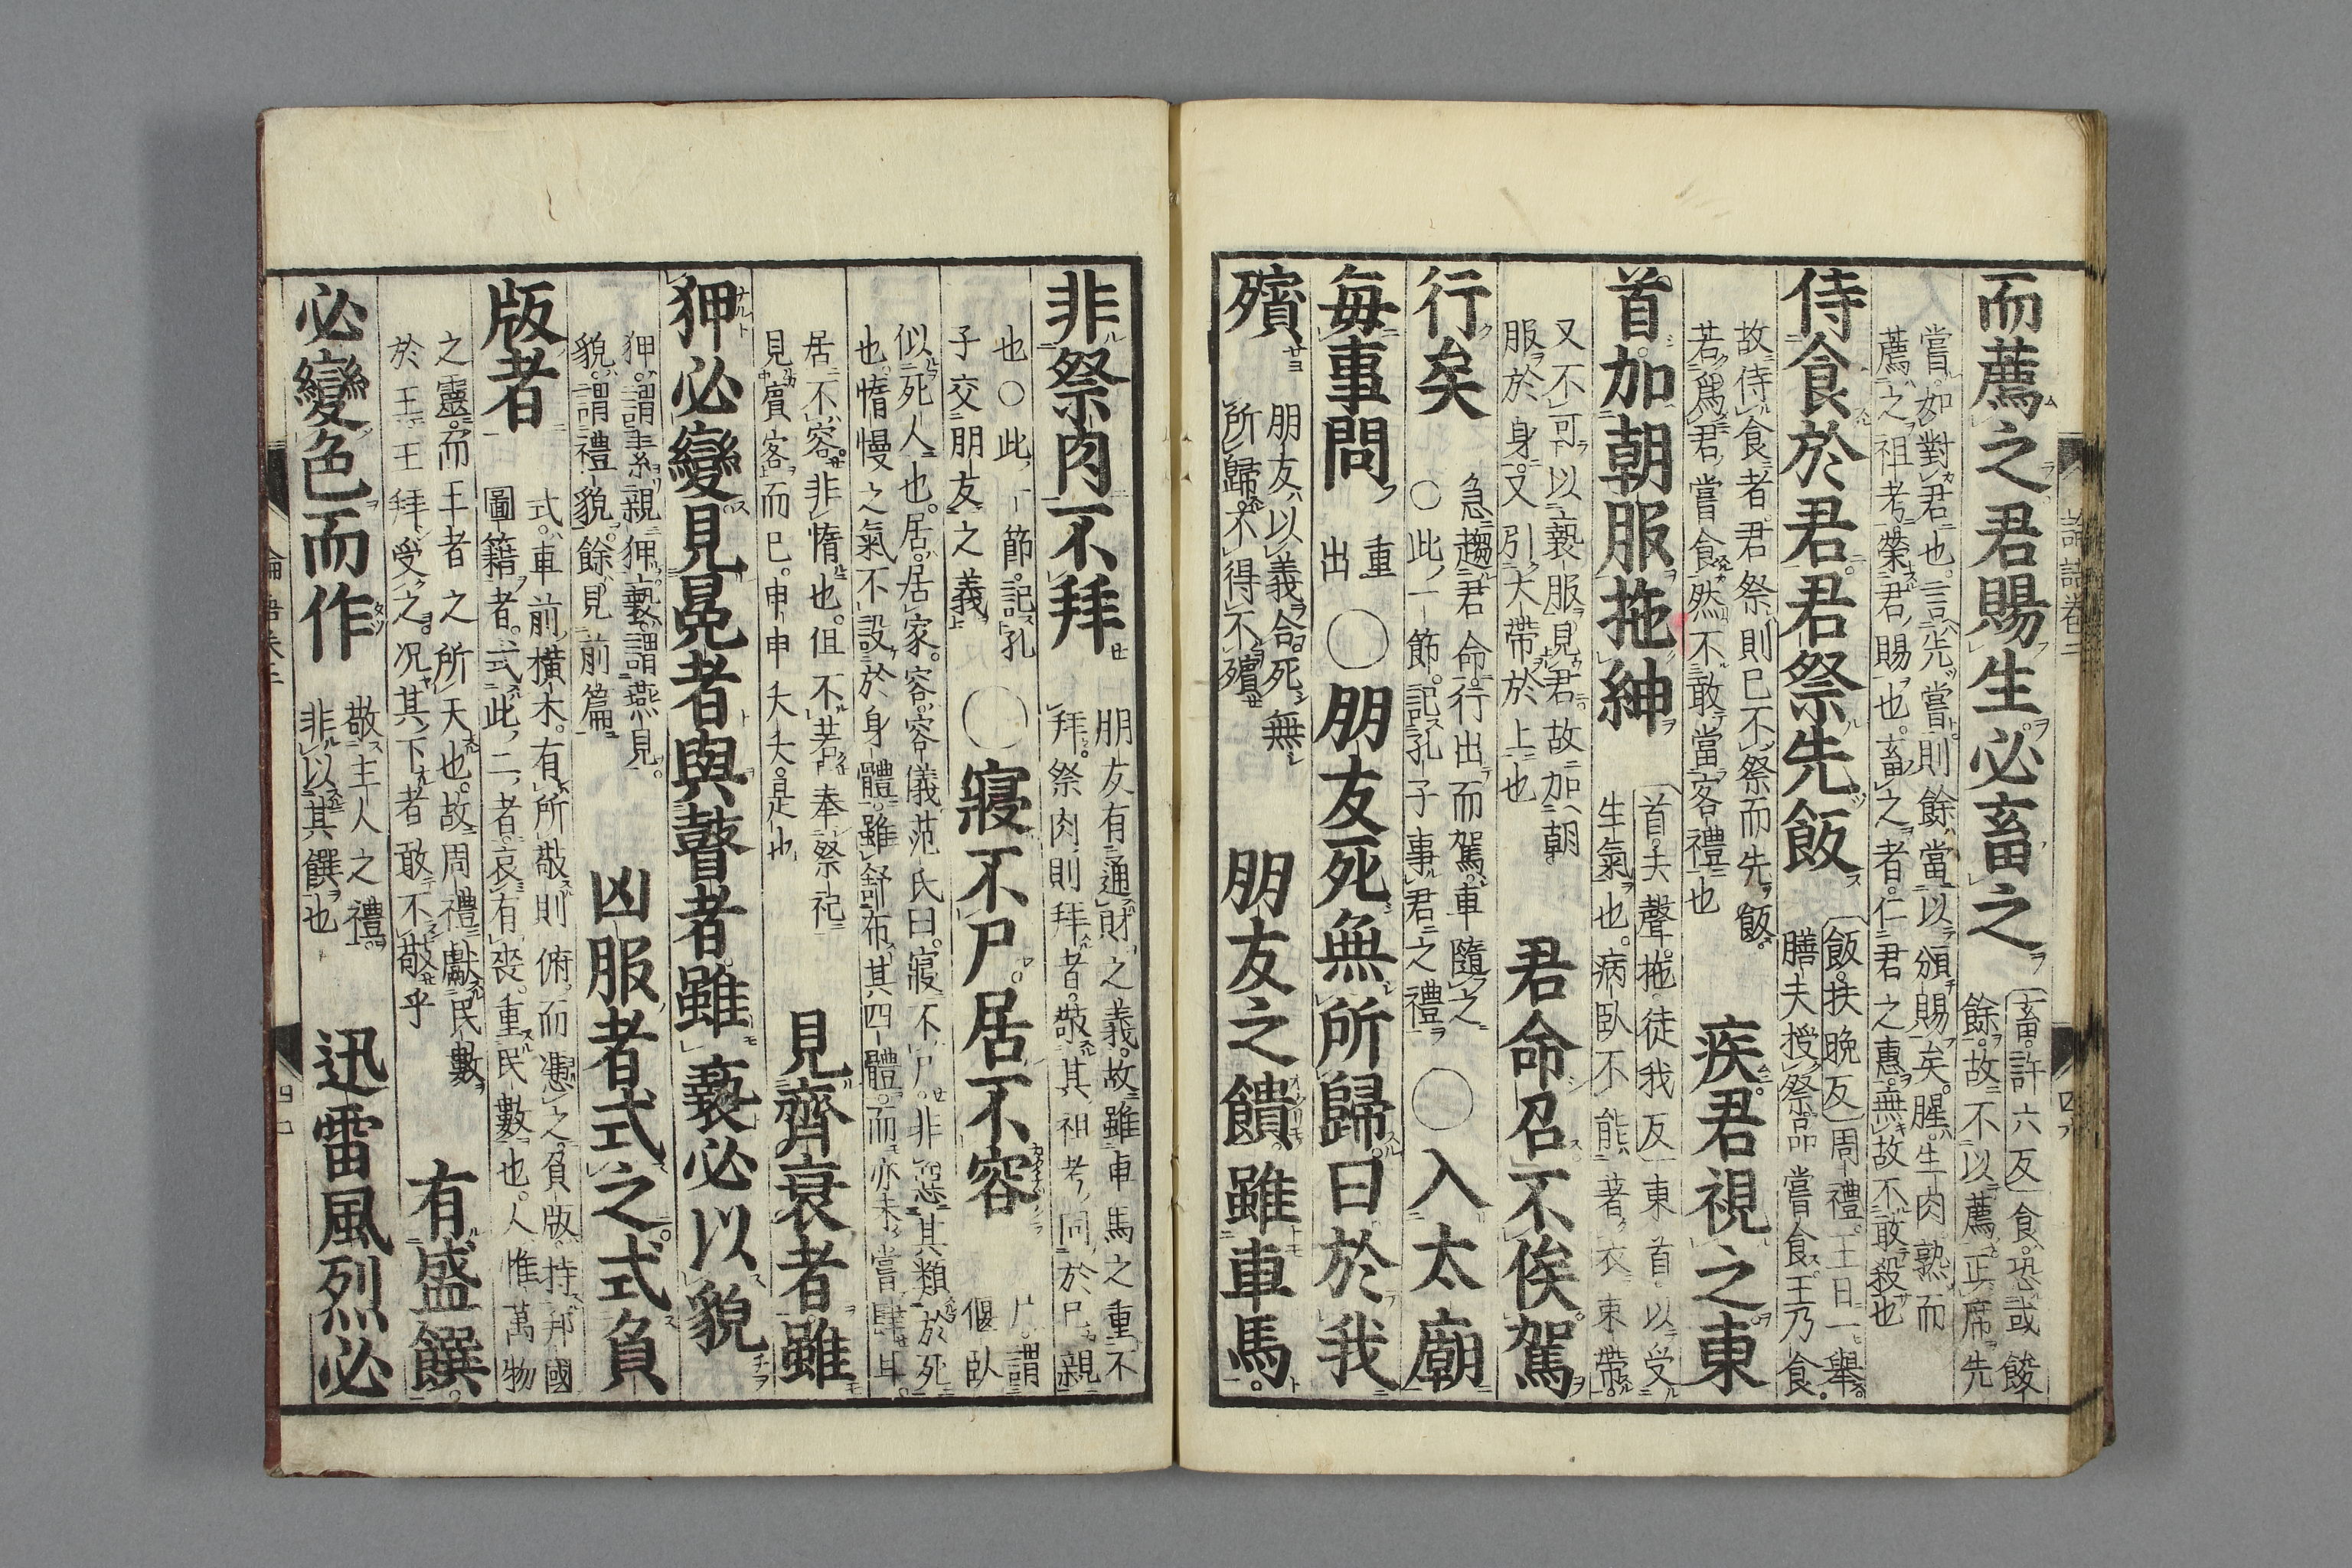 而薦之君賜生必畜之
畜許六反食恐或餕
餘故不以薦正席先
嘗如對君也言先嘗則餘當以頒賜矣腥生肉熟而
薦之祖考榮君賜也畜之者仁君之惠無故不敢殺也
侍食於君君祭先飯
飯扶晩反周禮王日一舉
膳夫授祭品嘗食王乃食
故侍食者君祭則已不祭而先飯
若爲君嘗食然不敢當客禮也
疾君視之東
首加朝服拖紳
首去聲拖徒我反東首以受
生氣也病臥不能著衣束帶
又不可以褻服見君故加朝
服於身又引大帶於上也
君命召不俟駕
行矣
急趨君命行出而駕車隨之
○此一節記孔子事君之禮
○入太廟
每事問
重
出
○朋友死無所歸曰於我
殯
朋友以義合死無
所歸不得不殯
朋友之饋雖車馬
非祭肉不拜
朋友有通財之義故雖車馬之重不
拜祭肉則拜者敬其祖考同於己親
也○此一節記孔
子交朋友之義
○寢不尸居不容
尸謂
偃臥
似死人也居居家容容儀范氏曰寢不尸非惡其類於死
也惰慢之氣不設於身體雖舒布其四體而亦未嘗肆耳
居不容非惰也但不若奉祭祀
見賓客而已申申夭夭是也
見齊衰者雖
狎必變見冕者與瞽者雖褻必以貌
狎謂素親狎褻謂燕見
貌謂禮貌餘見前篇
凶服者式之式負
版者
式車前横木有所敬則俯而憑之負版持邦國
圖籍者式此二者哀有喪重民數也人惟萬物
之靈而王者之所天也故周禮獻民數
於王王拜受之况其下者敢不敬乎
有盛饌
必變色而作
敬主人之禮
非以其饌也
迅雷風烈必